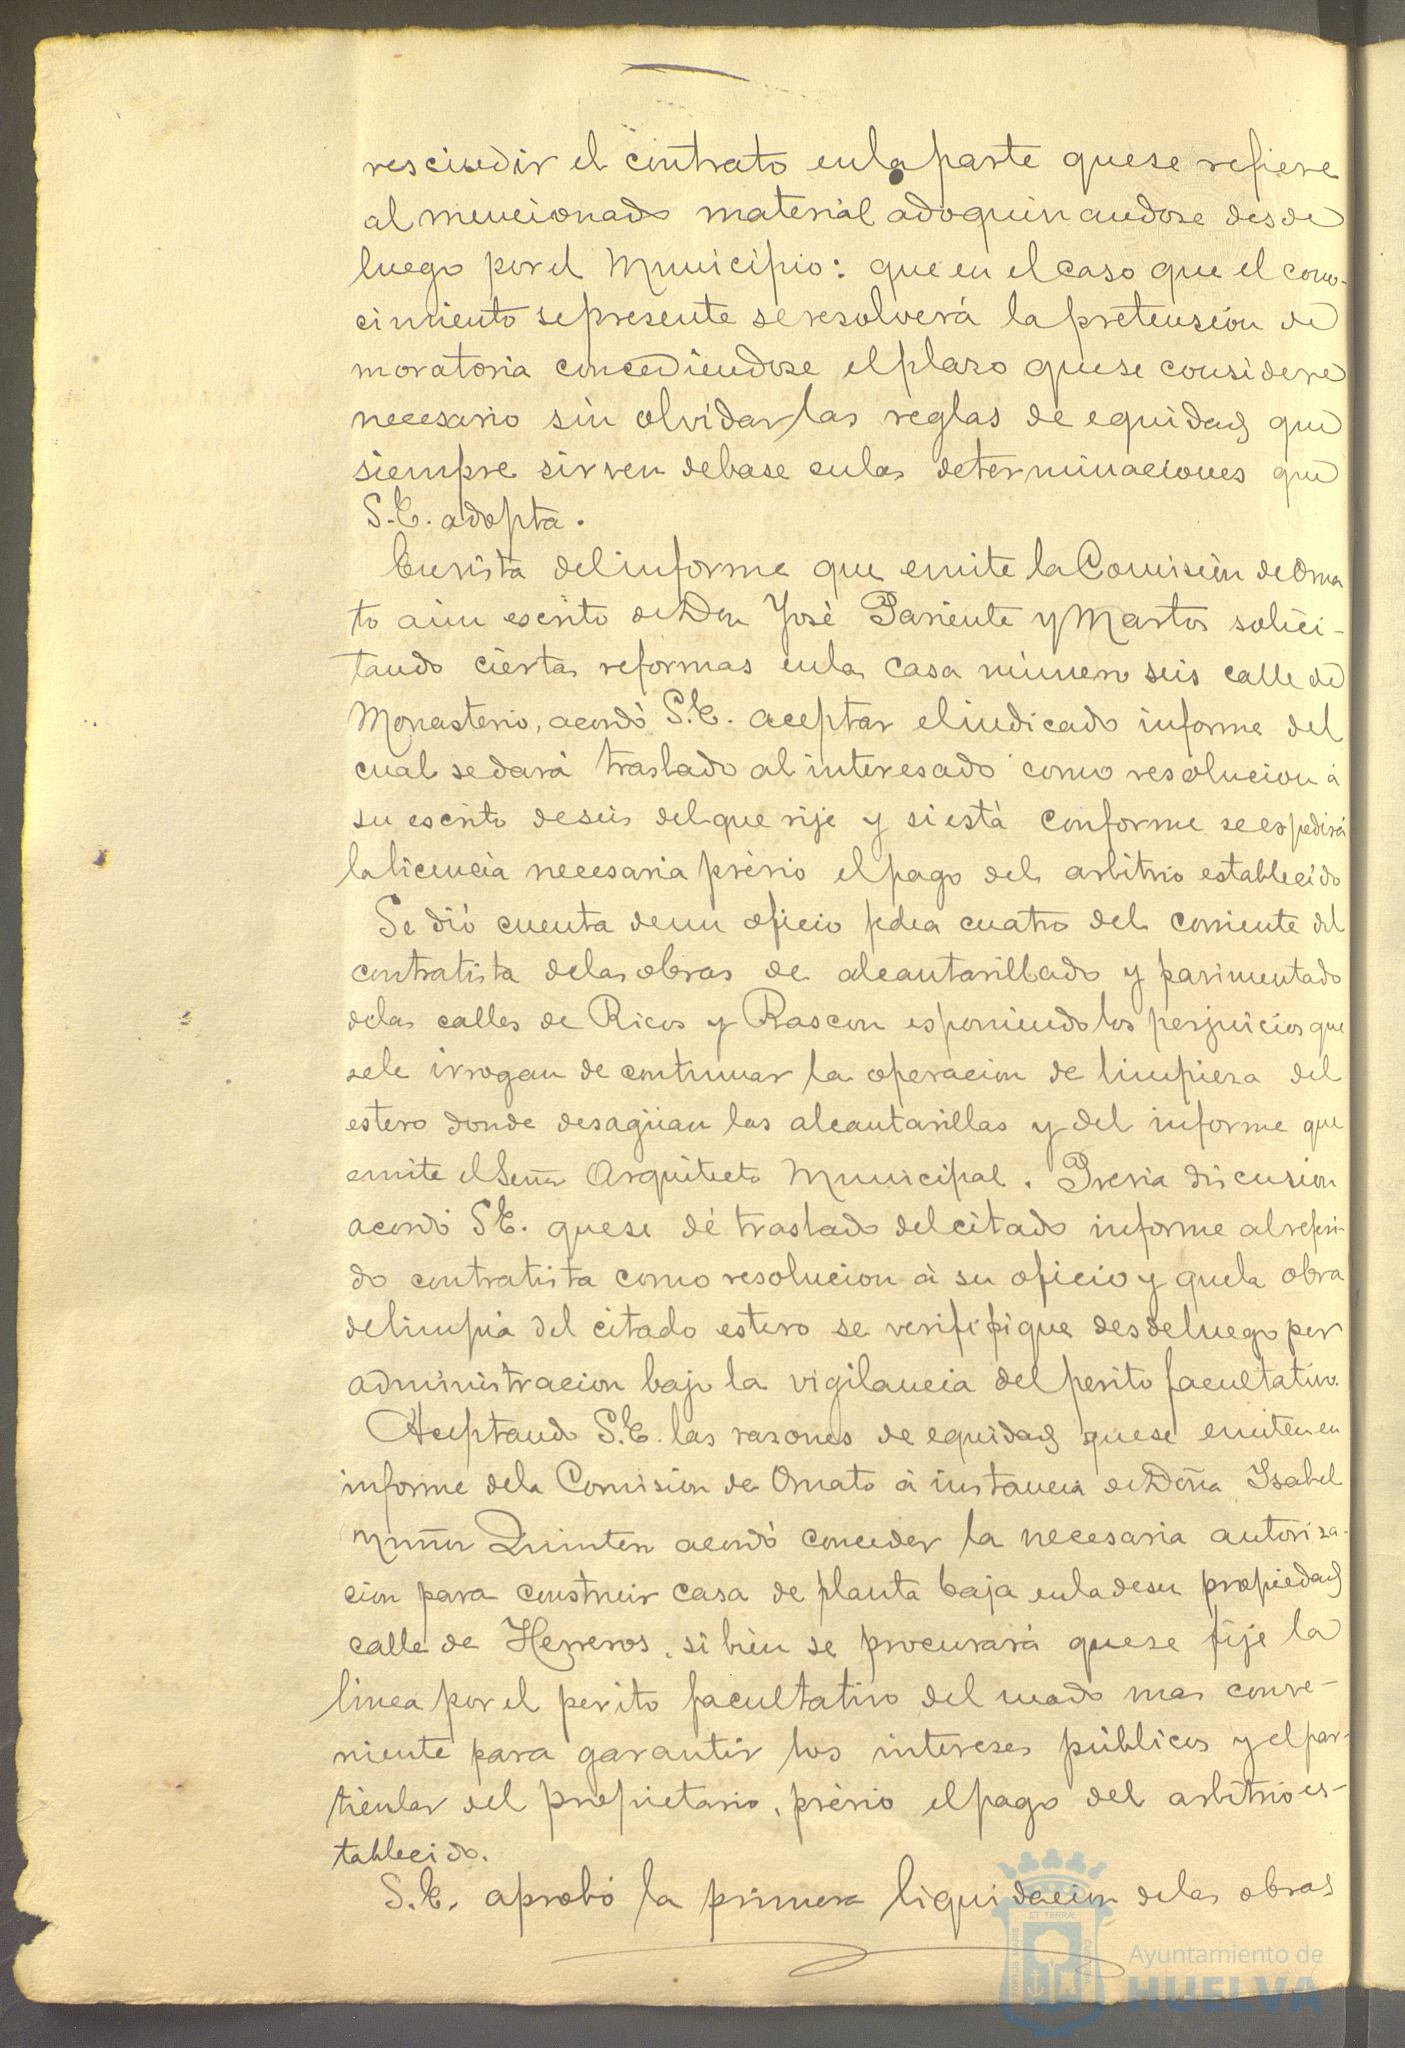 rescindir el contrato en la parte que se refiere
al mencionado material adoquinandose desde
luego por el Municipio: que en el caso que el cono-
cimiento se presente se resolverá la pretensión de
moratoria concediendose el plazo que se considere
necesario sin olvidar las reglas de equidad que
siempre sirven de base en las determinaciones que
S.E. adopta.
En vista del informe que emite la Comisión de Orna
to á un escrito de Don José Pariente y Martos solici-
tando ciertas reformas en la casa número seis calle de
Monasterio, acordó S.E. aceptar el indicado informe del
cual se dará traslado al interesado como resolucion á
su escrito de seis del que rije y si está conforme se espedirá
la licencia necesaria prévio el pago del arbitrio establecido
Se dió cuenta de un oficio fecha cuatro del corriente del
contratista de las obras de alcantarillado y pavimentado
de las calles de Ricos y Rascon esponiendo los perjuicios que
se le irrogan de continuar la operacion de limpieza del
estero donde desagüan las alcantarillas y del informe que
emite el Señor Arquitecto Municipal. Previa discusion
acordó S.E. que se dé traslado del citado informe al referi-
do contratista como resolucion á su oficio y que la obra
de limpia del citado estero se verififique desde luego por
administracion bajo la vigilancia del perito facultativo.
Aceptando S.E. las razones de equidad que se emiten en
informe de la Comisión de Ornato á instancia de Doña Isabel
Muñoz Quintero acordó conceder la necesaria autoriza-
cion para construir casa de planta baja en la de su propiedad
calle de Herreros, si bien se procurará que se fije la
linea por el perito facultativo del modo mas conve-
niente para garantir los intereses públicos y el par-
ticular del propietario, prévio el pago del arbitrio es-
tablecido.
S.E. aprobó la primera liquidacion de las obras
Ayuntamiento de
HUELVA